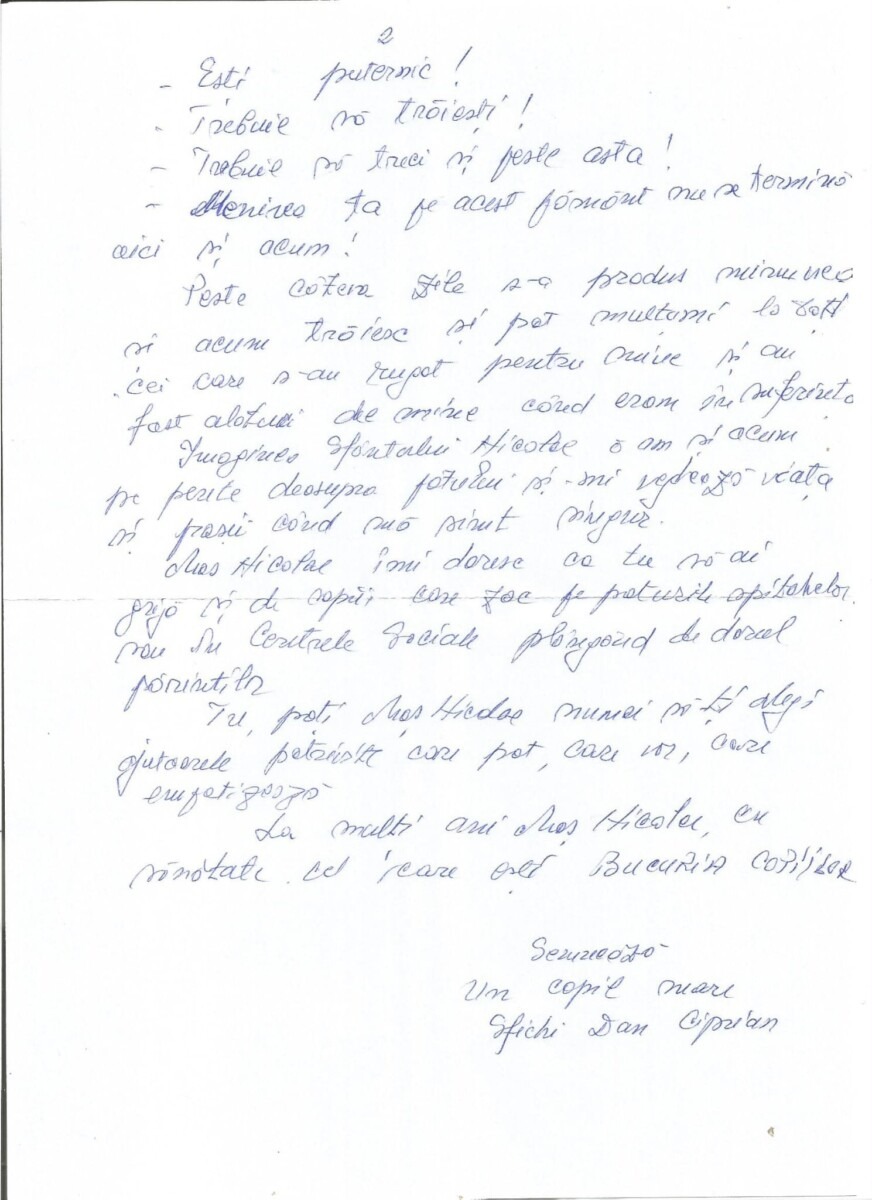 2
- Esti puternic!
- Trebuie să trăiești!
- Trebuie să treci și peste asta!
- Menirea ta pe acest pământ nu se termină
aici și acum!
Peste câteva zile s-a produs minunea
si acum trăiesc și pot mulțumi la toți
cei care s-au rugat pentru mine și au
fost alături de mine când eram în suferința
Imaginea Sfântului Nicolae o am și acum
pe perete deasupra patului și-mi veghează viața
și pașii când mă simt singur.
Moș Nicolae îmi doresc ca tu să ai
grijă și de copiii care zac pe paturile spitalelor
sau în Centrele Sociale plângând de dorul
părintilor
Tu, poți Moș Nicolae numai să-ți alegi
ajutoarele potrivite care pot, care vor, care
empatizează
La multi ani Moș Nicolae, cu
sănătate cel care ești BUCURIA COPIILOR
Semnează
Un copil mare
Sfichi Dan Ciprian